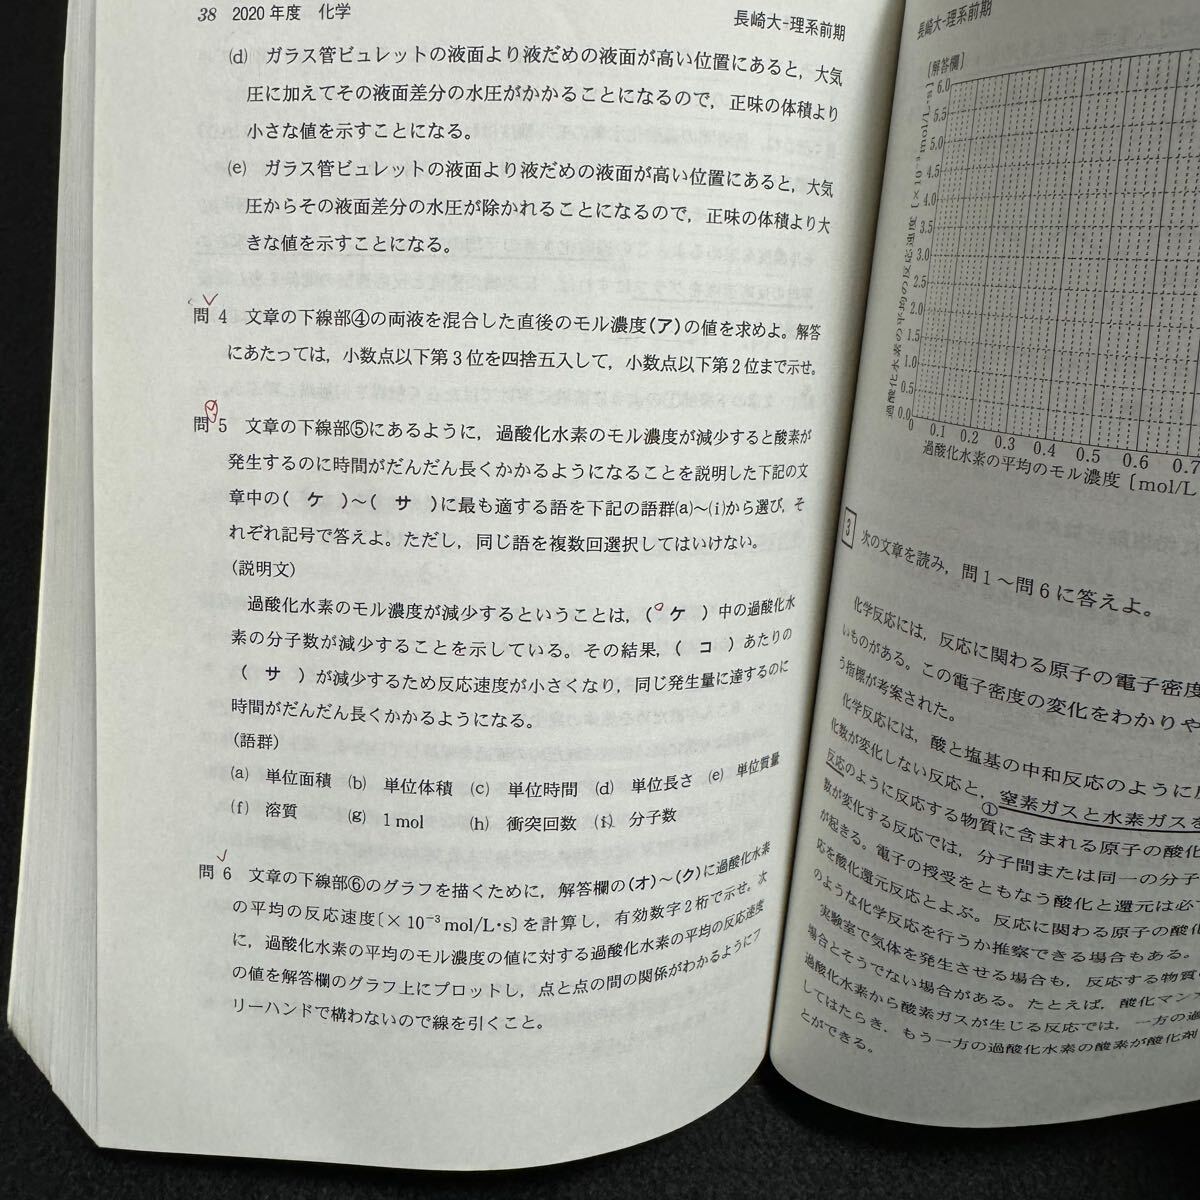 38 2020年度 化学
長崎大-理系前期
(d) ガラス管ビュレットの液面より液だめの液面が高い位置にあると，大気
圧に加えてその液面差分の水圧がかかることになるので，正味の体積より
小さな値を示すことになる。
(e) ガラス管ビュレットの液面より液だめの液面が高い位置にあると，大気
圧からその液面差分の水圧が除かれることになるので，正味の体積より大
きな値を示すことになる。
問4 文章の下線部④の両液を混合した直後のモル濃度(ア)の値を求めよ。解答
にあたっては，小数点以下第3位を四捨五入して，小数点以下第2位まで示せ。
問5 文章の下線部⑤にあるように，過酸化水素のモル濃度が減少すると酸素が
発生するのに時間がだんだん長くかかるようになることを説明した下記の文
章中の( ケ )～( サ )に最も適する語を下記の語群(a)～(i)から選び，そ
れぞれ記号で答えよ。ただし，同じ語を複数回選択してはいけない。
(説明文)
過酸化水素のモル濃度が減少するということは，( ケ )中の過酸化水
素の分子数が減少することを示している。その結果，( コ )あたりの
( サ )が減少するため反応速度が小さくなり，同じ発生量に達するのに
時間がだんだん長くかかるようになる。
(語群)
(a) 単位面積 (b) 単位体積 (c) 単位時間 (d) 単位長さ (e) 単位質量
(f) 溶質 (g) 1 mol (h) 衝突回数 (i) 分子数
問6 文章の下線部⑥のグラフを描くために，解答欄の(オ)～(ク)に過酸化水素
の平均の反応速度〔×10⁻³ mol/L・s〕を計算し，有効数字2桁で示せ。次
に，過酸化水素の平均のモル濃度の値に対する過酸化水素の平均の反応速度
の値を解答欄のグラフ上にプロットし，点と点の間の関係がわかるようにフ
リーハンドで構わないので線を引くこと。
長崎大-理系前期
〔解答欄〕
過酸化水素の平均の反応速度〔×10⁻³ mol/L・s〕
6.0
5.5
5.0
4.5
4.0
3.5
3.0
2.5
2.0
1.5
1.0
0.5
0.0
0 0.1 0.2 0.3 0.4 0.5 0.6 0.7
過酸化水素の平均のモル濃度〔mol/L
3 次の文章を読み，問1～問6に答えよ。
化学反応には，反応に関わる原子の電子密度
いものがある。この電子密度の変化をわかりや
う指標が考案された。
化学反応には，酸と塩基の中和反応のように
化数が変化しない反応と，窒素ガスと水素ガスを
①
反応のように反応する物質に含まれる原子の酸化
数が変化する反応では，分子間または同一の分子
が起きる。電子の授受をともなう酸化と還元は必
応を酸化還元反応とよぶ。反応に関わる原子の酸化
のような化学反応を行うか推察できる場合もある。
実験室で気体を発生させる場合も，反応する物質
場合とそうでない場合がある。たとえば，酸化マン
過酸化水素から酸素ガスが生じる反応では，一方の過
してはたらき，もう一方の過酸化水素の酸素が酸化剤
とができる。